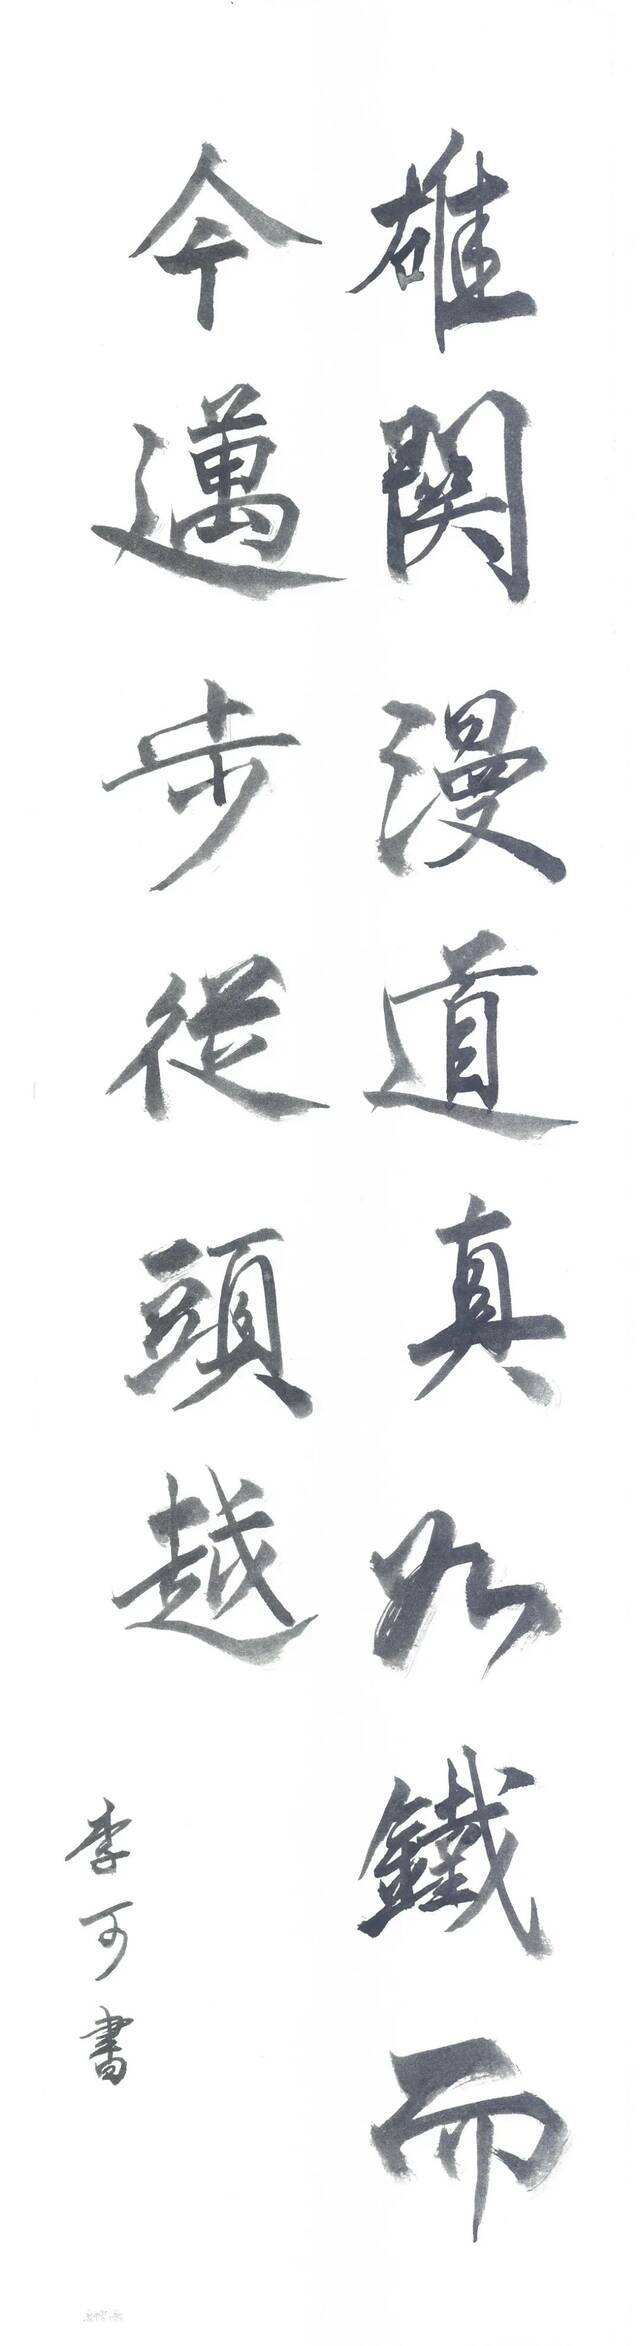 雄關漫道真如鐵而
今邁步從頭越
李可書